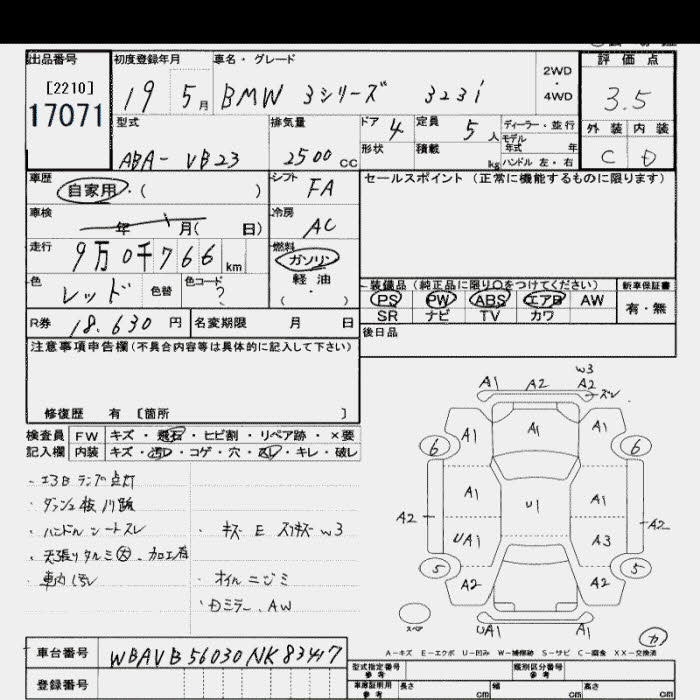 出品番号 初度登録年月 車名・グレード 評価点
[2210] 2WD
17071 19 5月 BMW 3シリーズ 323i 4WD 3.5
型式 排気量 ドア 4 定員 5人 ディーラー・並行 外装 内装
ABA-VB23 2500cc 形状 積載 kg モデル年式 年 C D
ハンドル 左・右
車歴 シフト セールスポイント (正常に機能するものに限ります)
自家用・( ) FA
車検 冷房
年 月( 日) AC
走行 燃料
9万0千766km ガソリン
色 色替 色コード 軽油 装備品 (純正品に限り○をつけてください) 新車保証書
レッド ? ( ・ ) PS PW ABS エアB AW 有・無
R券 18,630円 名変期限 月 日 SR ナビ TV カワ
注意事項申告欄(不具合内容等は具体的に記入して下さい) 後日品
修復歴 有 〔箇所 〕
検査員 FW キズ・飛石・ヒビ割・リペア跡・×要
記入欄 内装 キズ・汚レ・コゲ・穴・スレ・キレ・破レ
・エアB ランプ点灯
・ハンドル シートスレ ・キズ E スリキズ W3
・天張りタルミ 大 . 加工有
・車内汚レ ・オイルニジミ
・Dミラー . AW
W3
A1 A2 A2
ズレ
A1 A1 A1
6 6
A1 U1 A1
A2 UA1 A3 A2
5 5
A2 A2
スペア UA1 A1 カ
A-キズ E-エクボ U-凹み W-補修跡 S-サビ C-腐食 XX-交換済
車台番号 WBAVB56030NK83417
登録番号
型式指定番号 参考 類別区分番号 参考
車庫証明用 参考 長さ cm 幅 cm 高さ cm